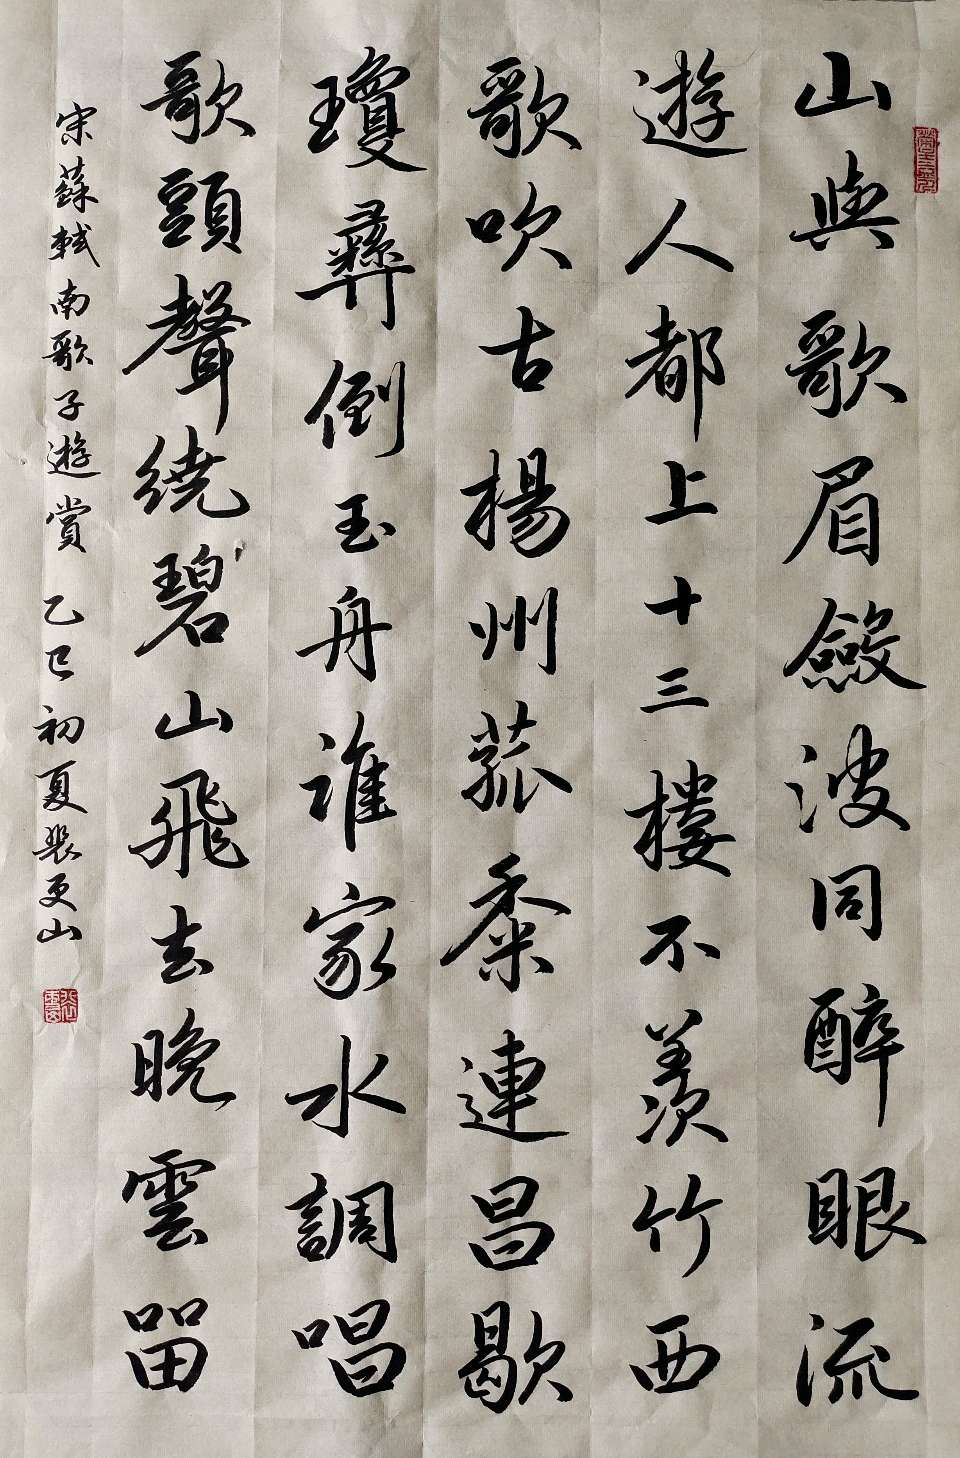 山與歌眉斂波同醉眼流
遊人都上十三樓不羨竹西
歌吹古楊州菰黍連昌歇
瓊彝倒玉舟誰家水調唱
歌頭聲繞碧山飛去晚雲留
宋蘇軾南歌子遊賞 乙巳初夏裴更山